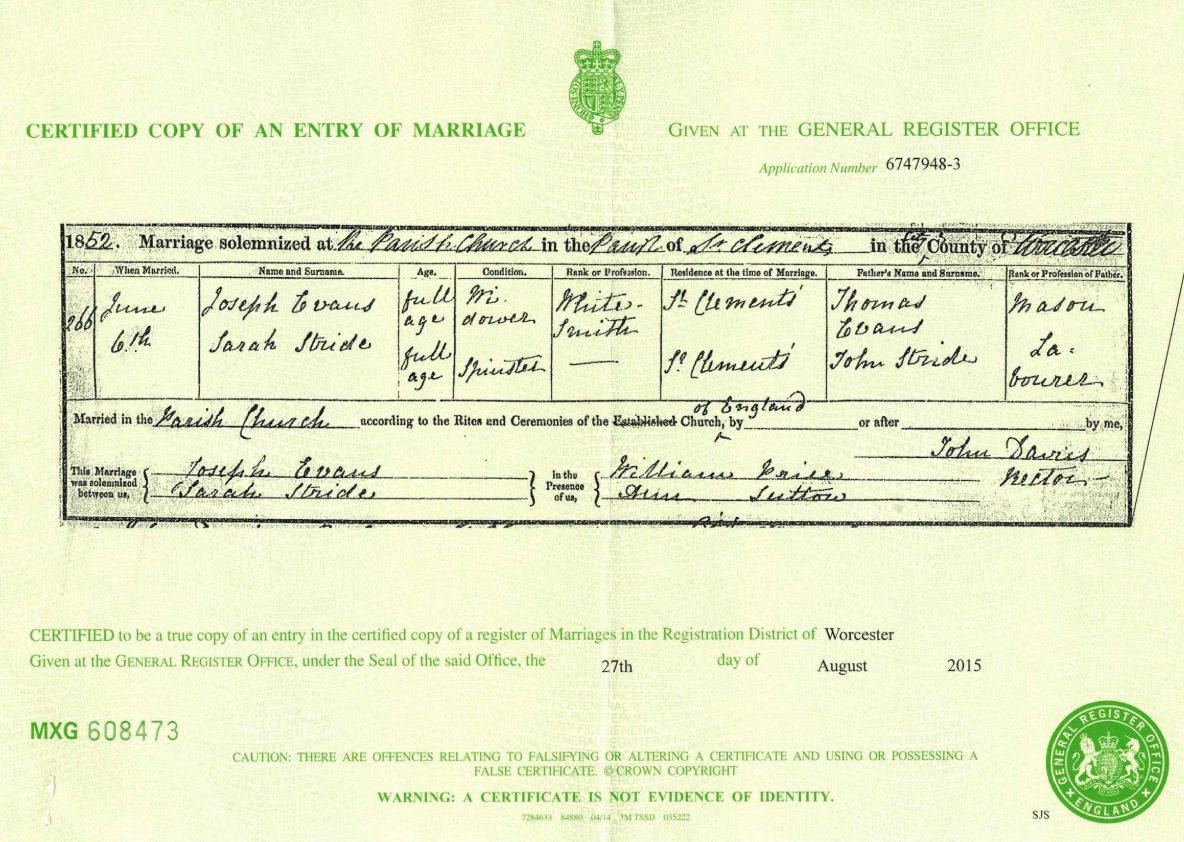 CERTIFIED COPY OF AN ENTRY OF MARRIAGE
GIVEN AT THE GENERAL REGISTER OFFICE
Application Number 6747948-3
1852. Marriage solemnized at the Parish Church in the Parish of St Clements in the City & County of Worcester
No. When Married. Name and Surname. Age. Condition. Rank or Profession. Residence at the time of Marriage. Father's Name and Surname. Rank or Profession of Father.
266 June 6th Joseph Evans full age Wi-dower White-Smith St Clements' Thomas Evans Mason
Sarah Stride full age Spinster — St Clements' John Stride La-bourer
Married in the Parish Church according to the Rites and Ceremonies of the Established Church, of England by or after by me,
John Davis
Rector
This Marriage was solemnized between us, Joseph Evans
Sarah Stride
in the Presence of us, William Price
Ann Sutton
CERTIFIED to be a true copy of an entry in the certified copy of a register of Marriages in the Registration District of Worcester
Given at the GENERAL REGISTER OFFICE, under the Seal of the said Office, the 27th day of August 2015
MXG 608473
CAUTION: THERE ARE OFFENCES RELATING TO FALSIFYING OR ALTERING A CERTIFICATE AND USING OR POSSESSING A
FALSE CERTIFICATE. © CROWN COPYRIGHT
WARNING: A CERTIFICATE IS NOT EVIDENCE OF IDENTITY.
7284633 84880 04/14 3M TSSD 035222
SJS
GENERAL REGISTER OFFICE
ENGLAND